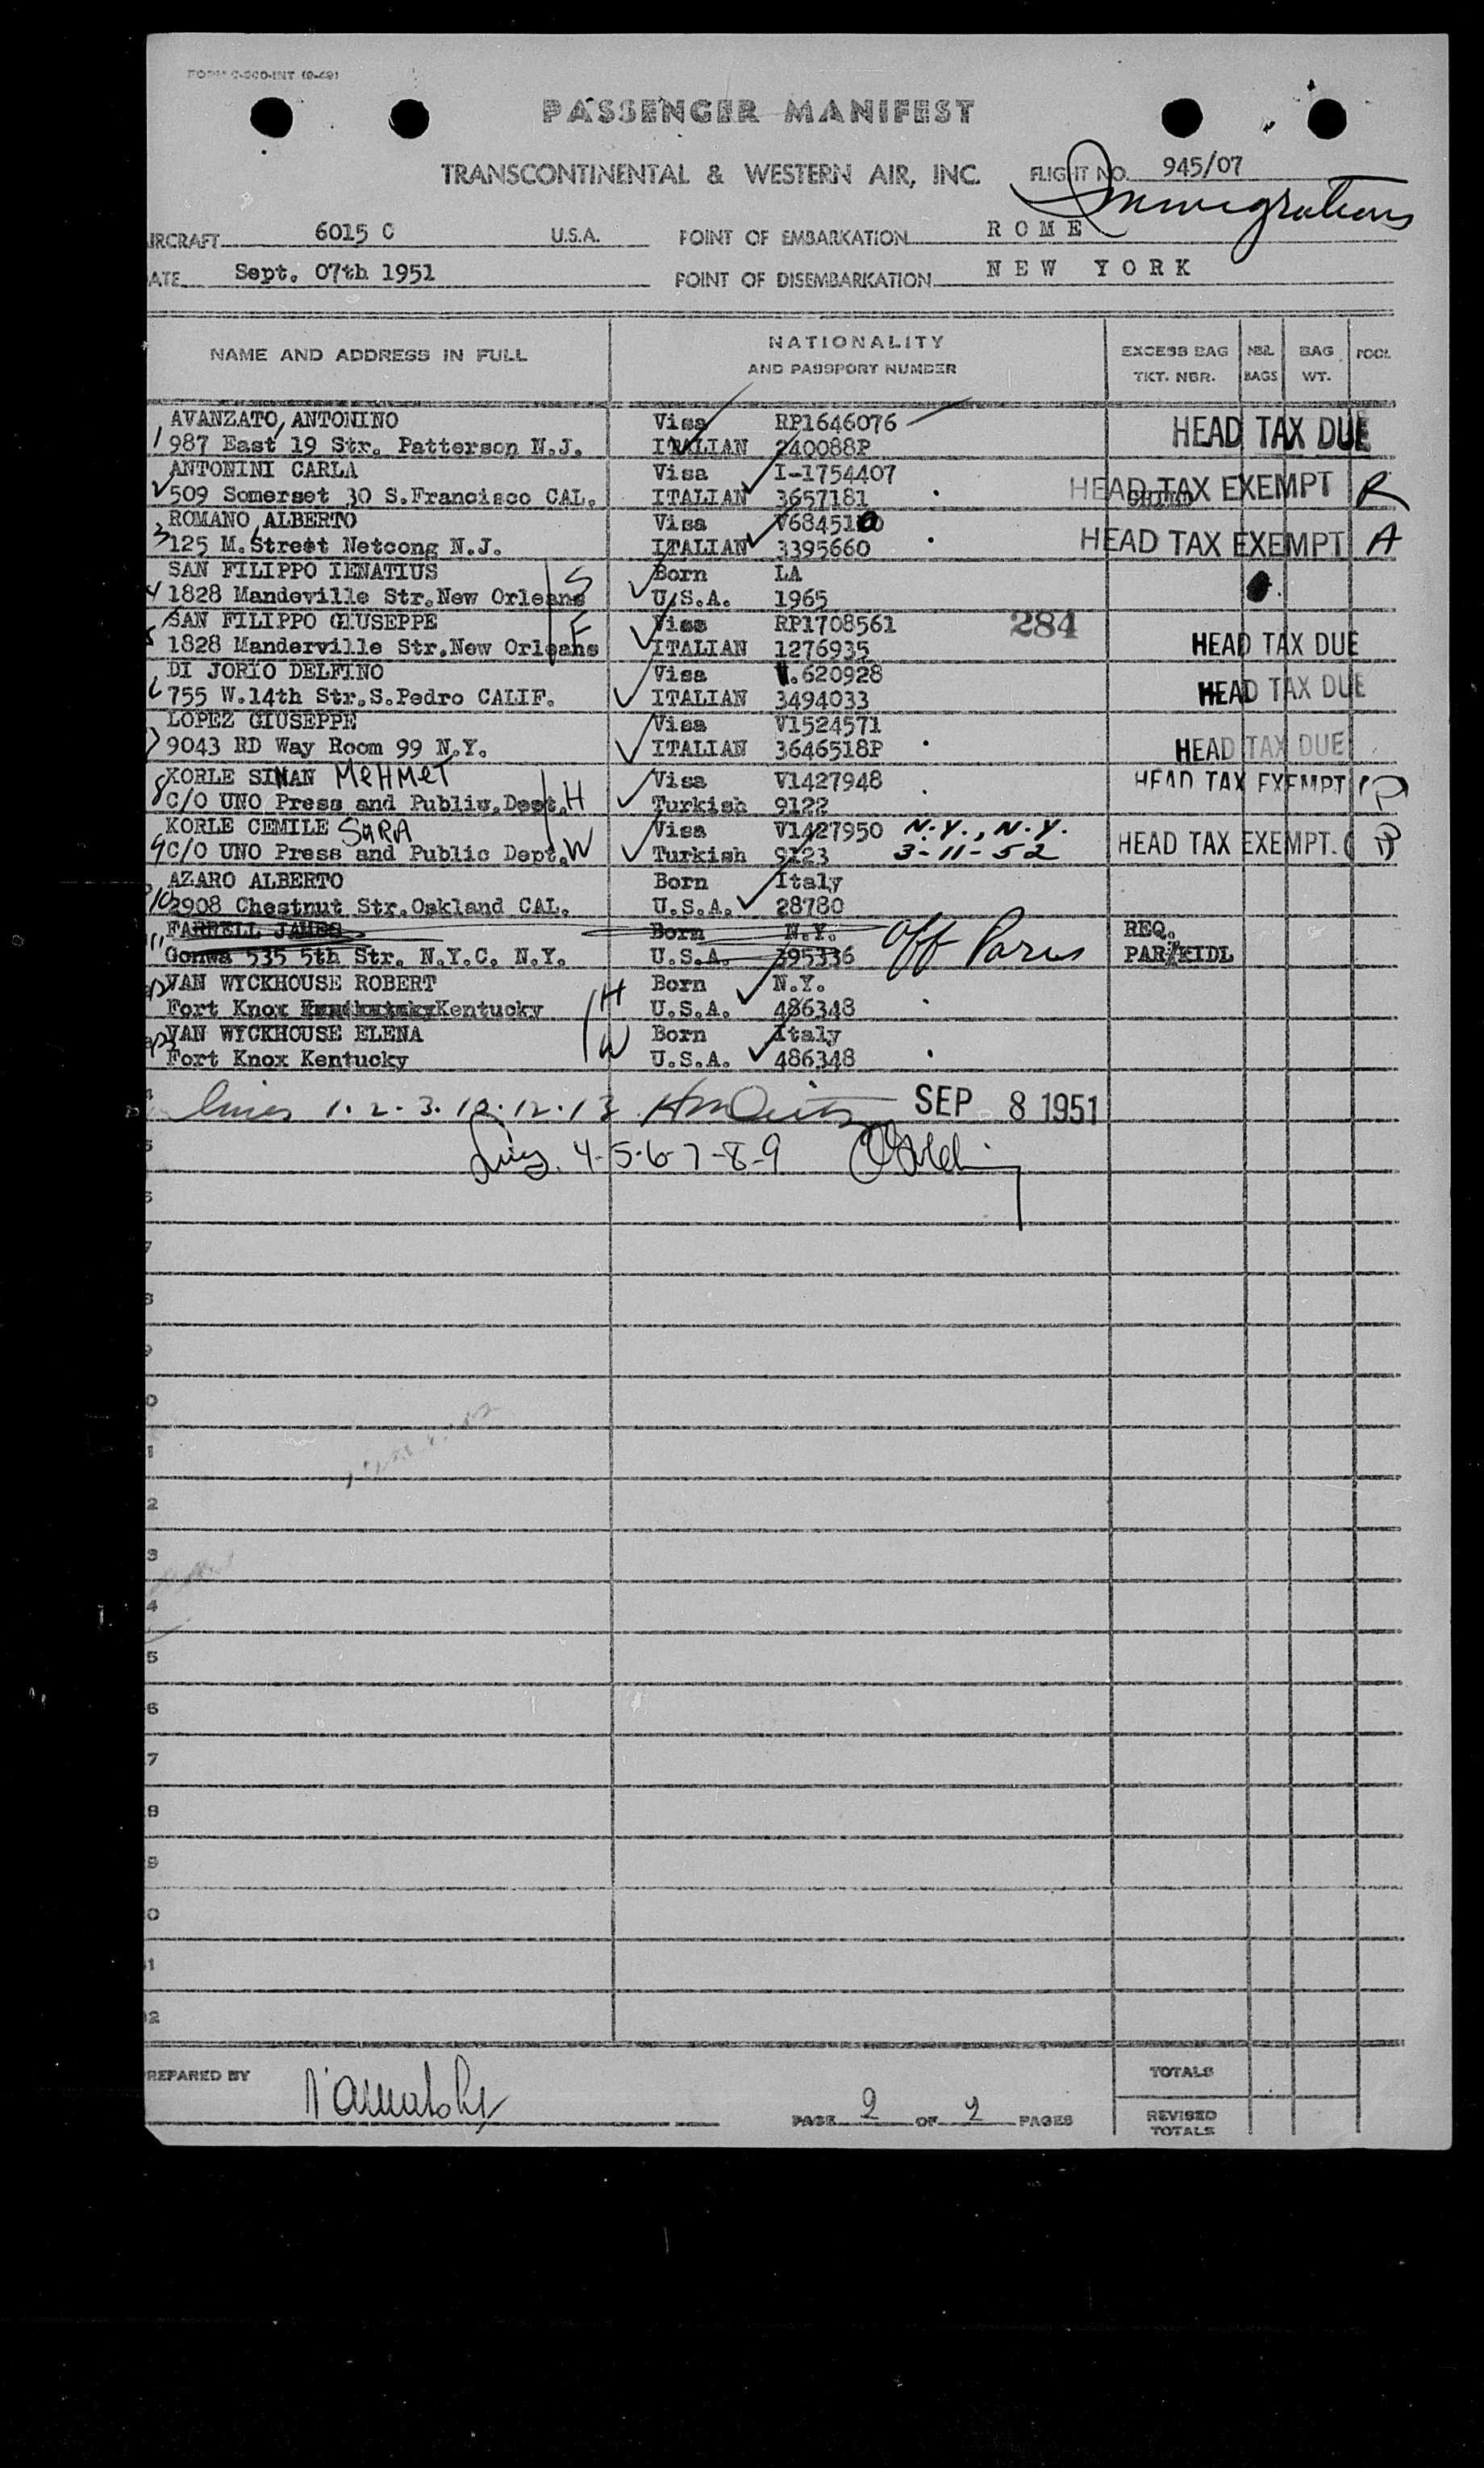 FORM C-200-INT (9-49)
PASSENGER MANIFEST
TRANSCONTINENTAL & WESTERN AIR, INC. FLIGHT NO. 945/07
Immigration
IRCRAFT 6015 C U.S.A. POINT OF EMBARKATION ROME
ATE Sept. 07th 1951 POINT OF DISEMBARKATION NEW YORK
NAME AND ADDRESS IN FULL NATIONALITY AND PASSPORT NUMBER EXCESS BAG TKT. NBR. NBR. BAGS BAG WT. POOL
AVANZATO, ANTONINO Visa RP1646076
1 987 East 19 Str. Patterson N.J. ITALIAN 240088P HEAD TAX DUE
ANTONINI CARLA Visa I-1754407
509 Somerset 30 S.Francisco CAL. ITALIAN 3657181 HEAD TAX EXEMPT R
ROMANO, ALBERTO Visa V684510
3 125 M. Street Netcong N.J. ITALIAN 3395660 HEAD TAX EXEMPT A
SAN FILIPPO IENATIUS Born LA
4 1828 Mandeville Str.New Orleans S U.S.A. 1965
SAN FILIPPO GIUSEPPE Visa RP1708561 284
5 1828 Manderville Str.New Orleans F ITALIAN 1276935 HEAD TAX DUE
DI JORIO DELFINO Visa V.620928
6 755 W.14th Str.S.Pedro CALIF. ITALIAN 3494033 HEAD TAX DUE
LOPEZ GIUSEPPE Visa V1524571
7 9043 RD Way Room 99 N.Y. ITALIAN 3646518P HEAD TAX DUE
KORLE SINAN MEHMET Visa V1427948
8 C/O UNO Press and Publiv.Dept. H Turkish 9122 HEAD TAX EXEMPT P
KORLE CEMILE SARA Visa V1427950 N.Y., N.Y.
9 C/O UNO Press and Public Dept. W Turkish 9123 3-11-52 HEAD TAX EXEMPT. P
AZARO ALBERTO Born Italy
10 2908 Chestnut Str.Oakland CAL. U.S.A. 28780
FARRELL JAMES Born N.Y. REQ.
11 Gonwa 535 5th Str. N.Y.C. N.Y. U.S.A. 395336 Off Paris PAR/KIDL
VAN WYCKHOUSE ROBERT Born N.Y.
12 Fort Knox Kentucky H U.S.A. 486348
VAN WYCKHOUSE ELENA Born Italy
13 Fort Knox Kentucky W U.S.A. 486348
Lines 1. 2. 3. 10. 12. 13 SEP 8 1951
5 Lines 4-5-6-7-8-9
6
7
8
9
0
1
2
3
4
5
6
7
8
9
0
1
2
REPARED BY PAGE 2 OF 2 PAGES
TOTALS
REVISED TOTALS